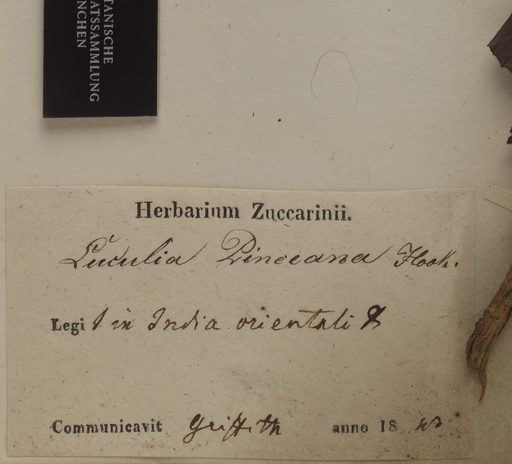 TANISCHE
ATSSAMMLUNG
NCHEN
Herbarium Zuccarinii.
Luculia Pinceana Hook.
Legit in India orientali
Communicavit Griffith anno 18